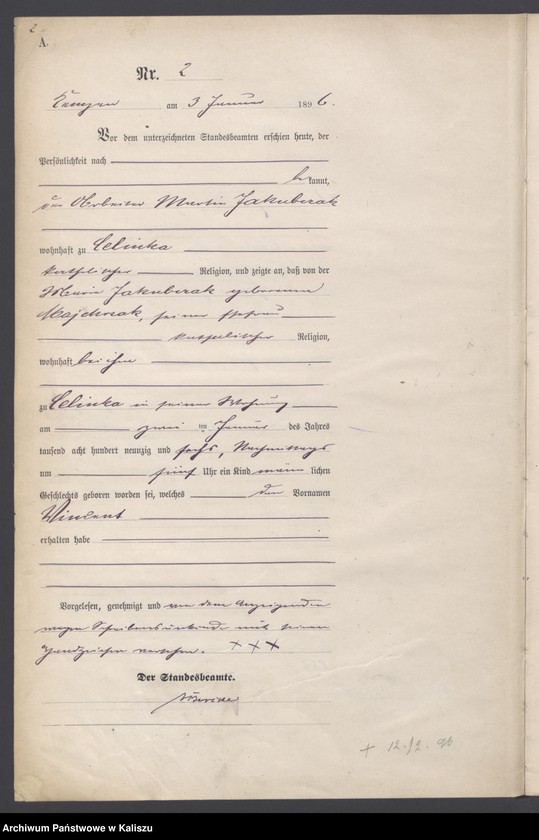 2
A.
Nr. 2
Kempen am 3 Januar 1896.
Vor dem unterzeichneten Standesbeamten erschien heute, der
Persönlichkeit nach
bekannt,
der Arbeiter Martin Jakubczak
wohnhaft zu Celinka
katholischer Religion, und zeigte an, daß von der
Maria Jakubczak geborenen
Majchrzak, seiner Ehefrau
katholischer Religion,
wohnhaft bei ihm
zu Celinka in seiner Wohnung
am zwei ten Januar des Jahres
tausend acht hundert neunzig und sechs, Nachmittags
um fünf Uhr ein Kind männlichen
Geschlechts geboren worden sei, welches den Vornamen
Vincent
erhalten habe
Vorgelesen, genehmigt und von dem Anzeigenden
wegen Schreibensunkunde mit seinem
Handzeichen versehen. +++
Der Standesbeamte.
+ 12.12.96
Archiwum Państwowe w Kaliszu